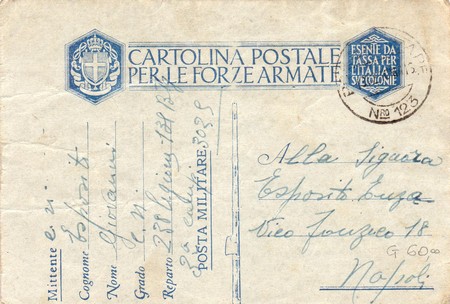 CARTOLINA POSTALE
PER LE FORZE ARMATE
ESENTE DA
TASSA PER
L'ITALIA E
SUE COLONIE
No 123
Mittente C. N.
Cognome Esposito
Nome Giovanni
Grado C. N.
Reparto 238 Legione
POSTA MILITARE 3039
Alla Signora
Esposito Enza
Vico 18
Napoli
G 60